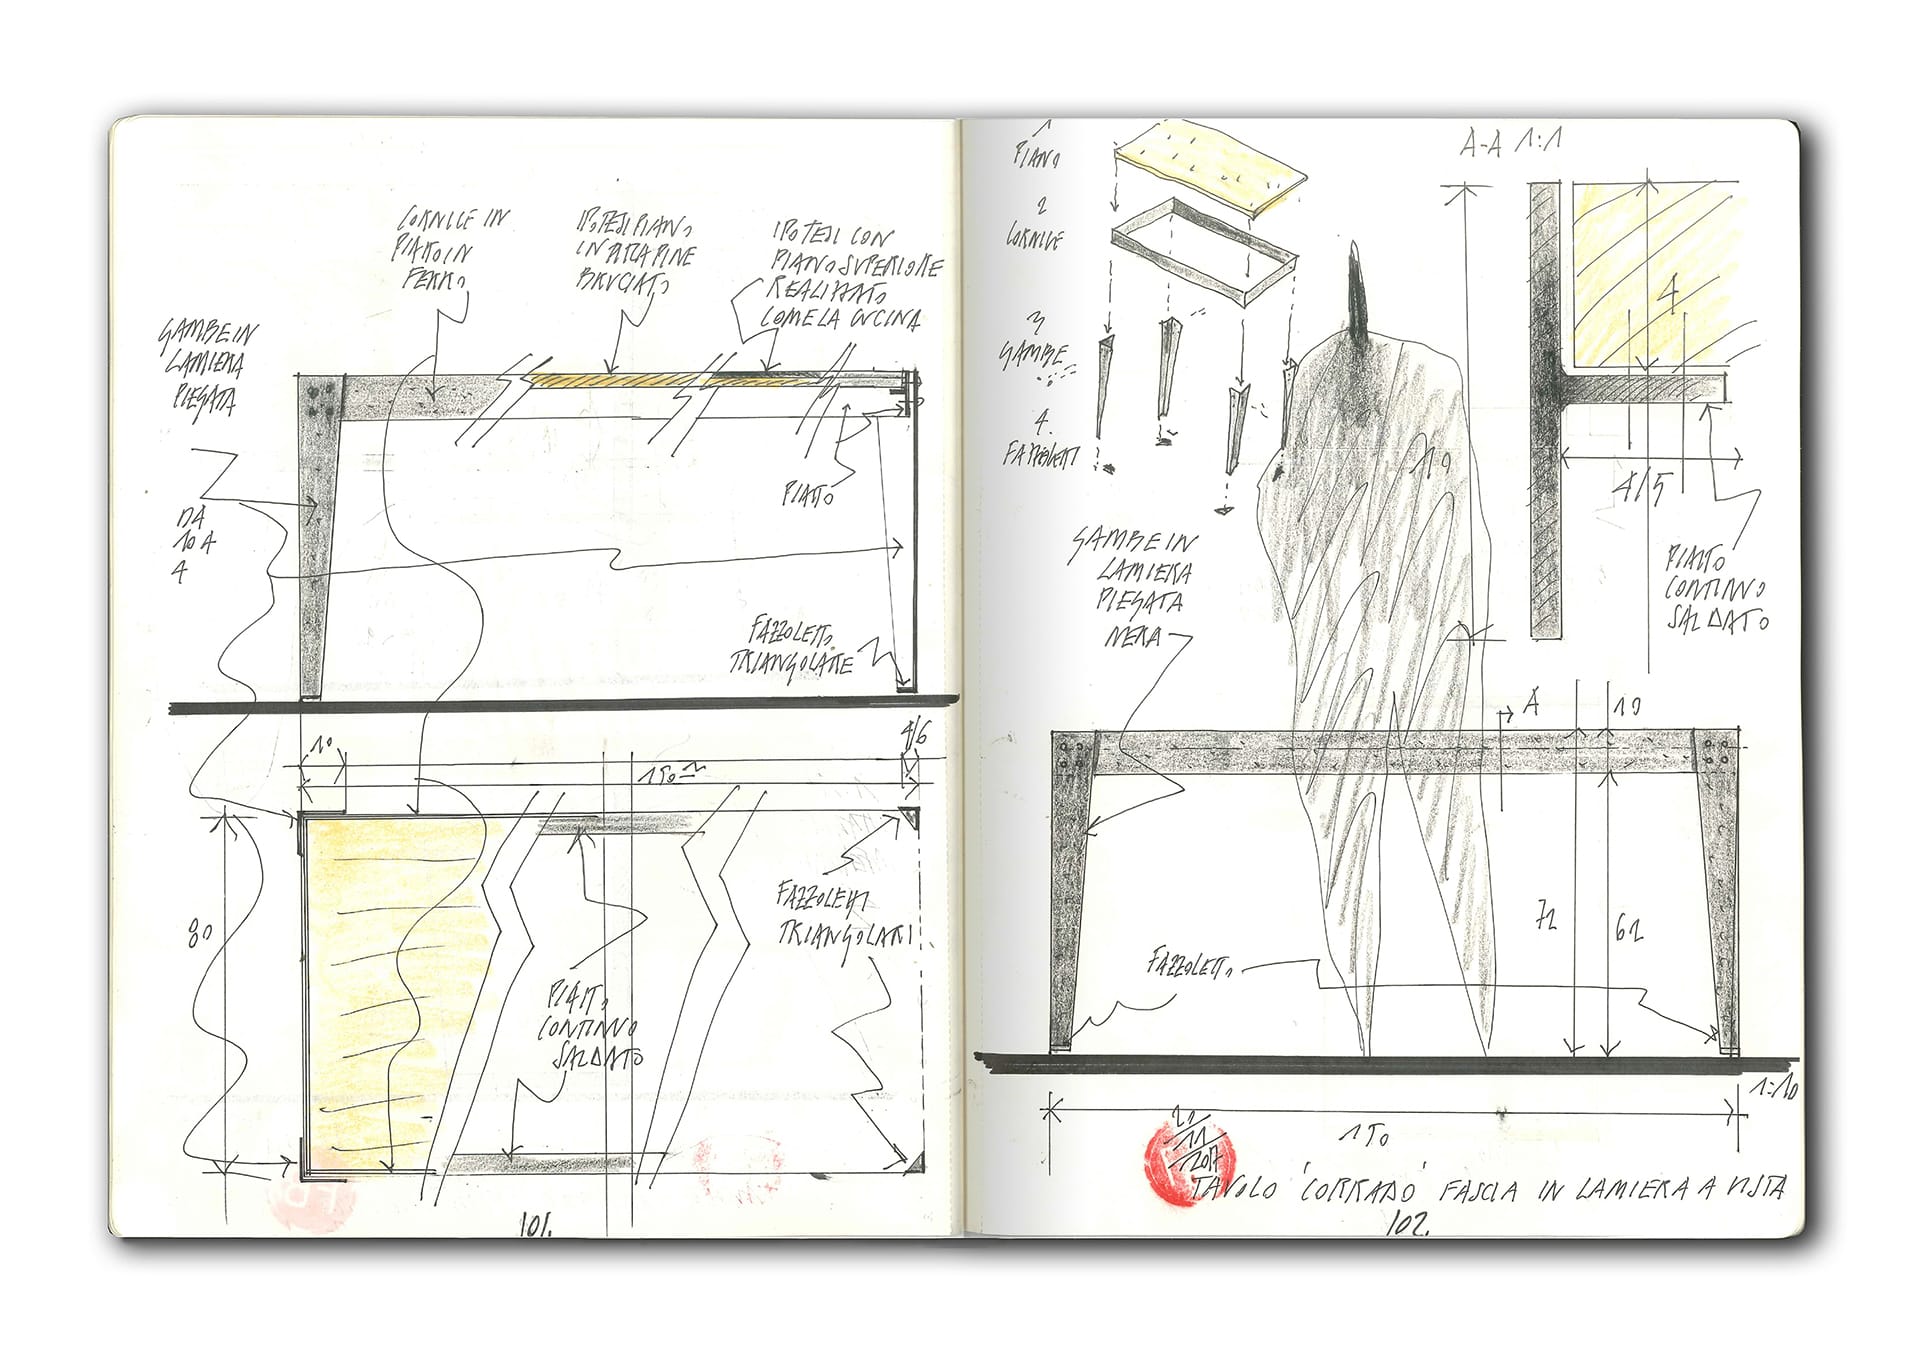 CORNICE IN
PIATTO IN
FERRO
IPOTESI PIANO
IN PITCH PINE
BRUCIATO
IPOTESI CON
PIANO SUPERIORE
REALIZZATO
COME LA CUCINA
GAMBE IN
LAMIERA
PIEGATA
DA
10 A
4
PIATTO
FAZZOLETTO
TRIANGOLARE
10
4/6
150
80
PIATTO
CONTINUO
SALDATO
FAZZOLETTI
TRIANGOLARI
101.
1
PIANO
2
CORNICE
3
GAMBE
4.
FAZZOLETTI
A-A 1:1
10
4
4/5
PIATTO
CONTINUO
SALDATO
GAMBE IN
LAMIERA
PIEGATA
NERA
A
10
72
62
FAZZOLETTO
1:10
150
20
11
2017
TAVOLO 'CORRADO' FASCIA IN LAMIERA A VISTA
102.